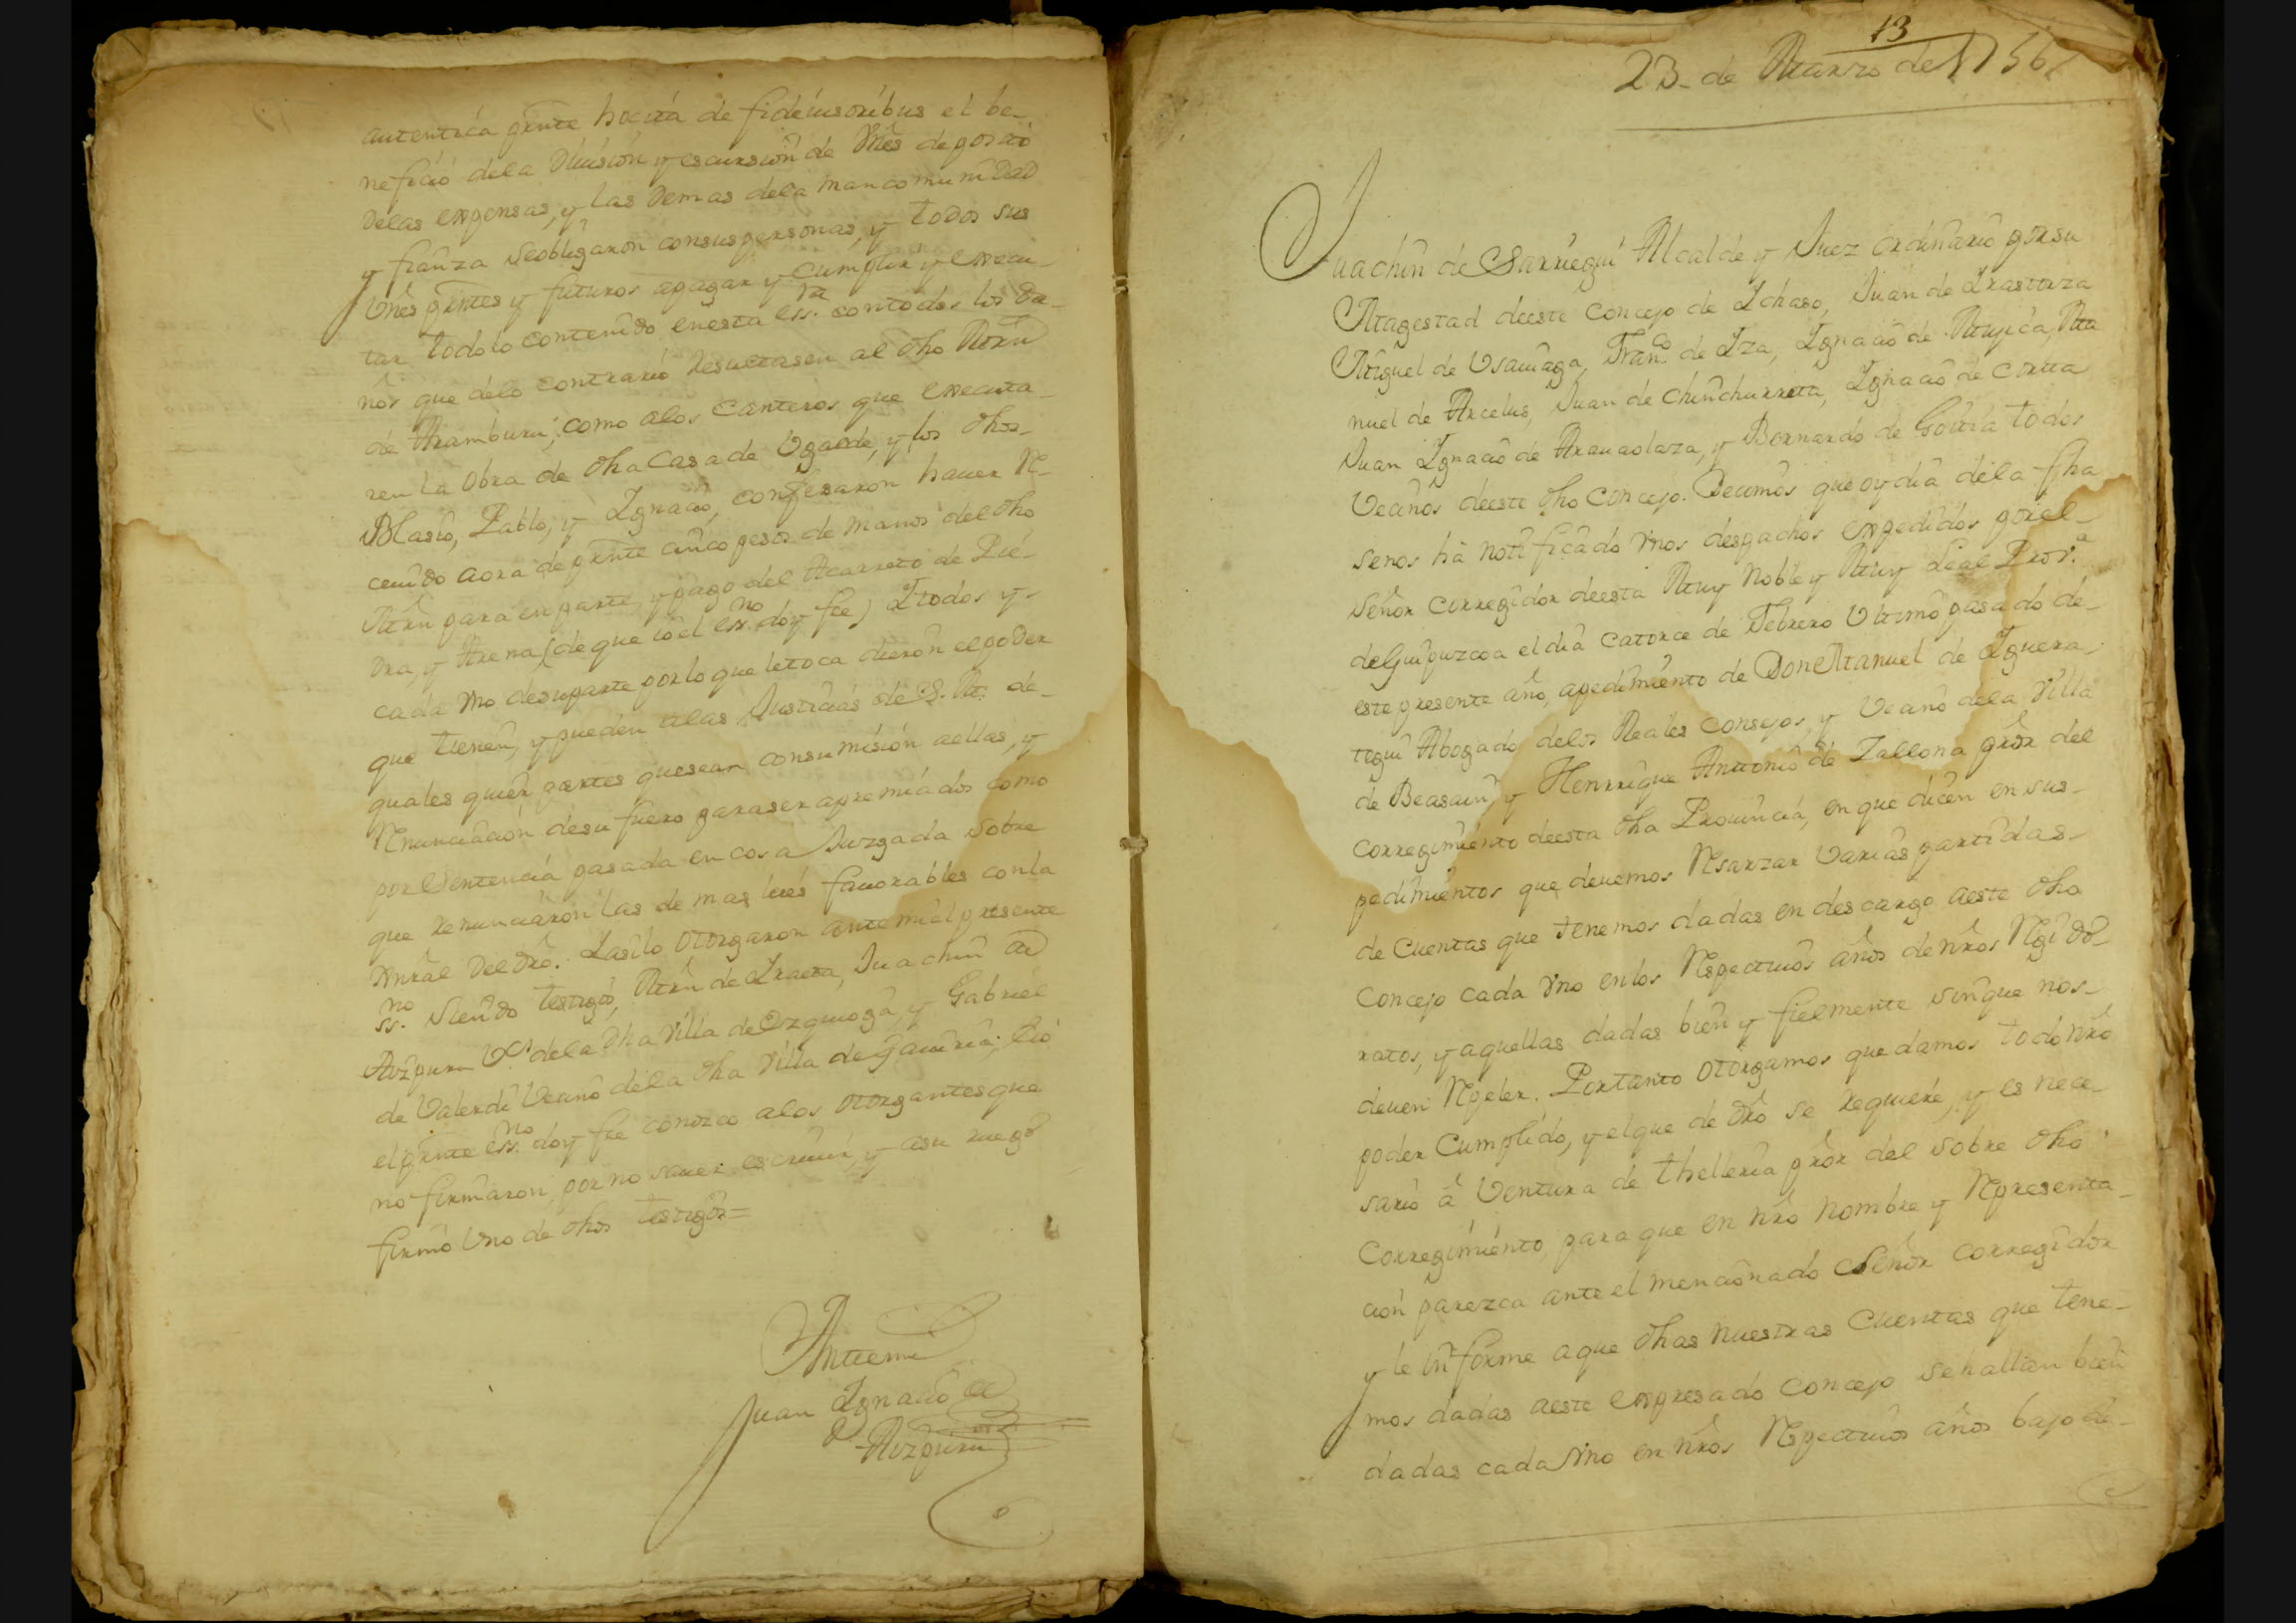 autentica pnte hocita de fideiusoribus el be-
neficio dela Diuision y escursion de Vnes deposito
Delas expensas, y las Demas dela mancomunidad
y fianza seobligaron consus personas, y todos sus
Vnes pntes y futuros apagar y cumplir y execu-
tar todolo contenido enesta ess.ra contodos los da-
nôs que delo contrario Resultasen al dho Mrñ
de Aramburu; como alos Canteros que executa-
ren la obra de dha Casa de Ugarde, y los dhos
Blasio, Pablo, y Ignacio, confesaron hauer R-
ceuido aora de pnte cinco pesos de manos del dho
Mrñ para en parte, y pago del Acarreto de Pie-
dra, y Arena (de que io el ess.no doy fee) I todos y
cada Vno desuparte porlo que letoca dieron elpoder
que tienen, y pueden alas Justicias de S. M. de-
quales quier partes quesean consumision aellas, y
Rnunciacion desu fuero paraser apremiados como
por Sentencia pasada en cosa Juzgada sobre
que Renunciaron las de mas leies fauorables conla
xnral Del dro. Iasilo otorgaron ante mi el presente
ss.no siendo testigos, Mrñ de Iraeta, Juachin de
Aizpuru V.os dela dha Villa de Ezquioga, y Gabriel
de Valerdi Vecino dela dha Villa de Gauiria; eio
elpnte ess.no doy fee conozco alos otorgantes que
no firmaron, por no sauer escriuir, y asu ruego
firmô Vno de dhos testigos=
Antemi
Juan Ignacio de
Aizpuru
13
23- de Marzo de 1756
Juachin de Sarriegui Alcalde y Juez ordinario porsu
Magestad deeste Concejo de Ichaso, Juan de Irastorza
Miguel de Vsauiaga, Fran.co de Iza, Ignacio de Mujica, Ma
nuel de Arcelus, Juan de Chinchurreta, Ignacio de Corta
Juan Ignacio de Araoaolaza, y Bernardo de Goitia todos
Vecinos deeste dho Concejo. Decimos que oydia dela fha
senos hâ notificado Vnos despachos expedidos porel-
Señor Corregidor deesta Muy Noble y Muy Leal Prov.a
deGuipuzcoa el dia catorce de Febrero Vltimo pasado de-
este presente año, apedimiento de Don Manuel de Iguera-
tegui Abogado delos Reales Consejos, y Vecino dela Villa
de Beasain, y Henrrique Antonio de Zallona pror del
Corregimiento deesta dha Prouincia, en que dicen en sus-
pedimientos que deuemos Rsarzar Varias partidas-
de Cuentas que tenemos dadas en descargo aeste dho
Concejo cada Vno enlos Rspectiuos años de nros Rgido-
ratos, y aquellas dadas bien y fielmente sinque nos-
deuen Rpeler. Portanto otorgamos que damos todo nro
poder Cumplido, y elque de dro se requiere, y es nece-
sario â Ventura de thelleria pror del sobre dho
Corregimiento, para que en nro nombre y Rpresenta-
cion parezca ante el mencionado Señor Corregidor
y le informe aque dhas nuestras Cuentas que tene-
mos dadas aeste expresado Concejo sehallan bien
dadas cada Vno en nros Rspectiuos años bajo de-